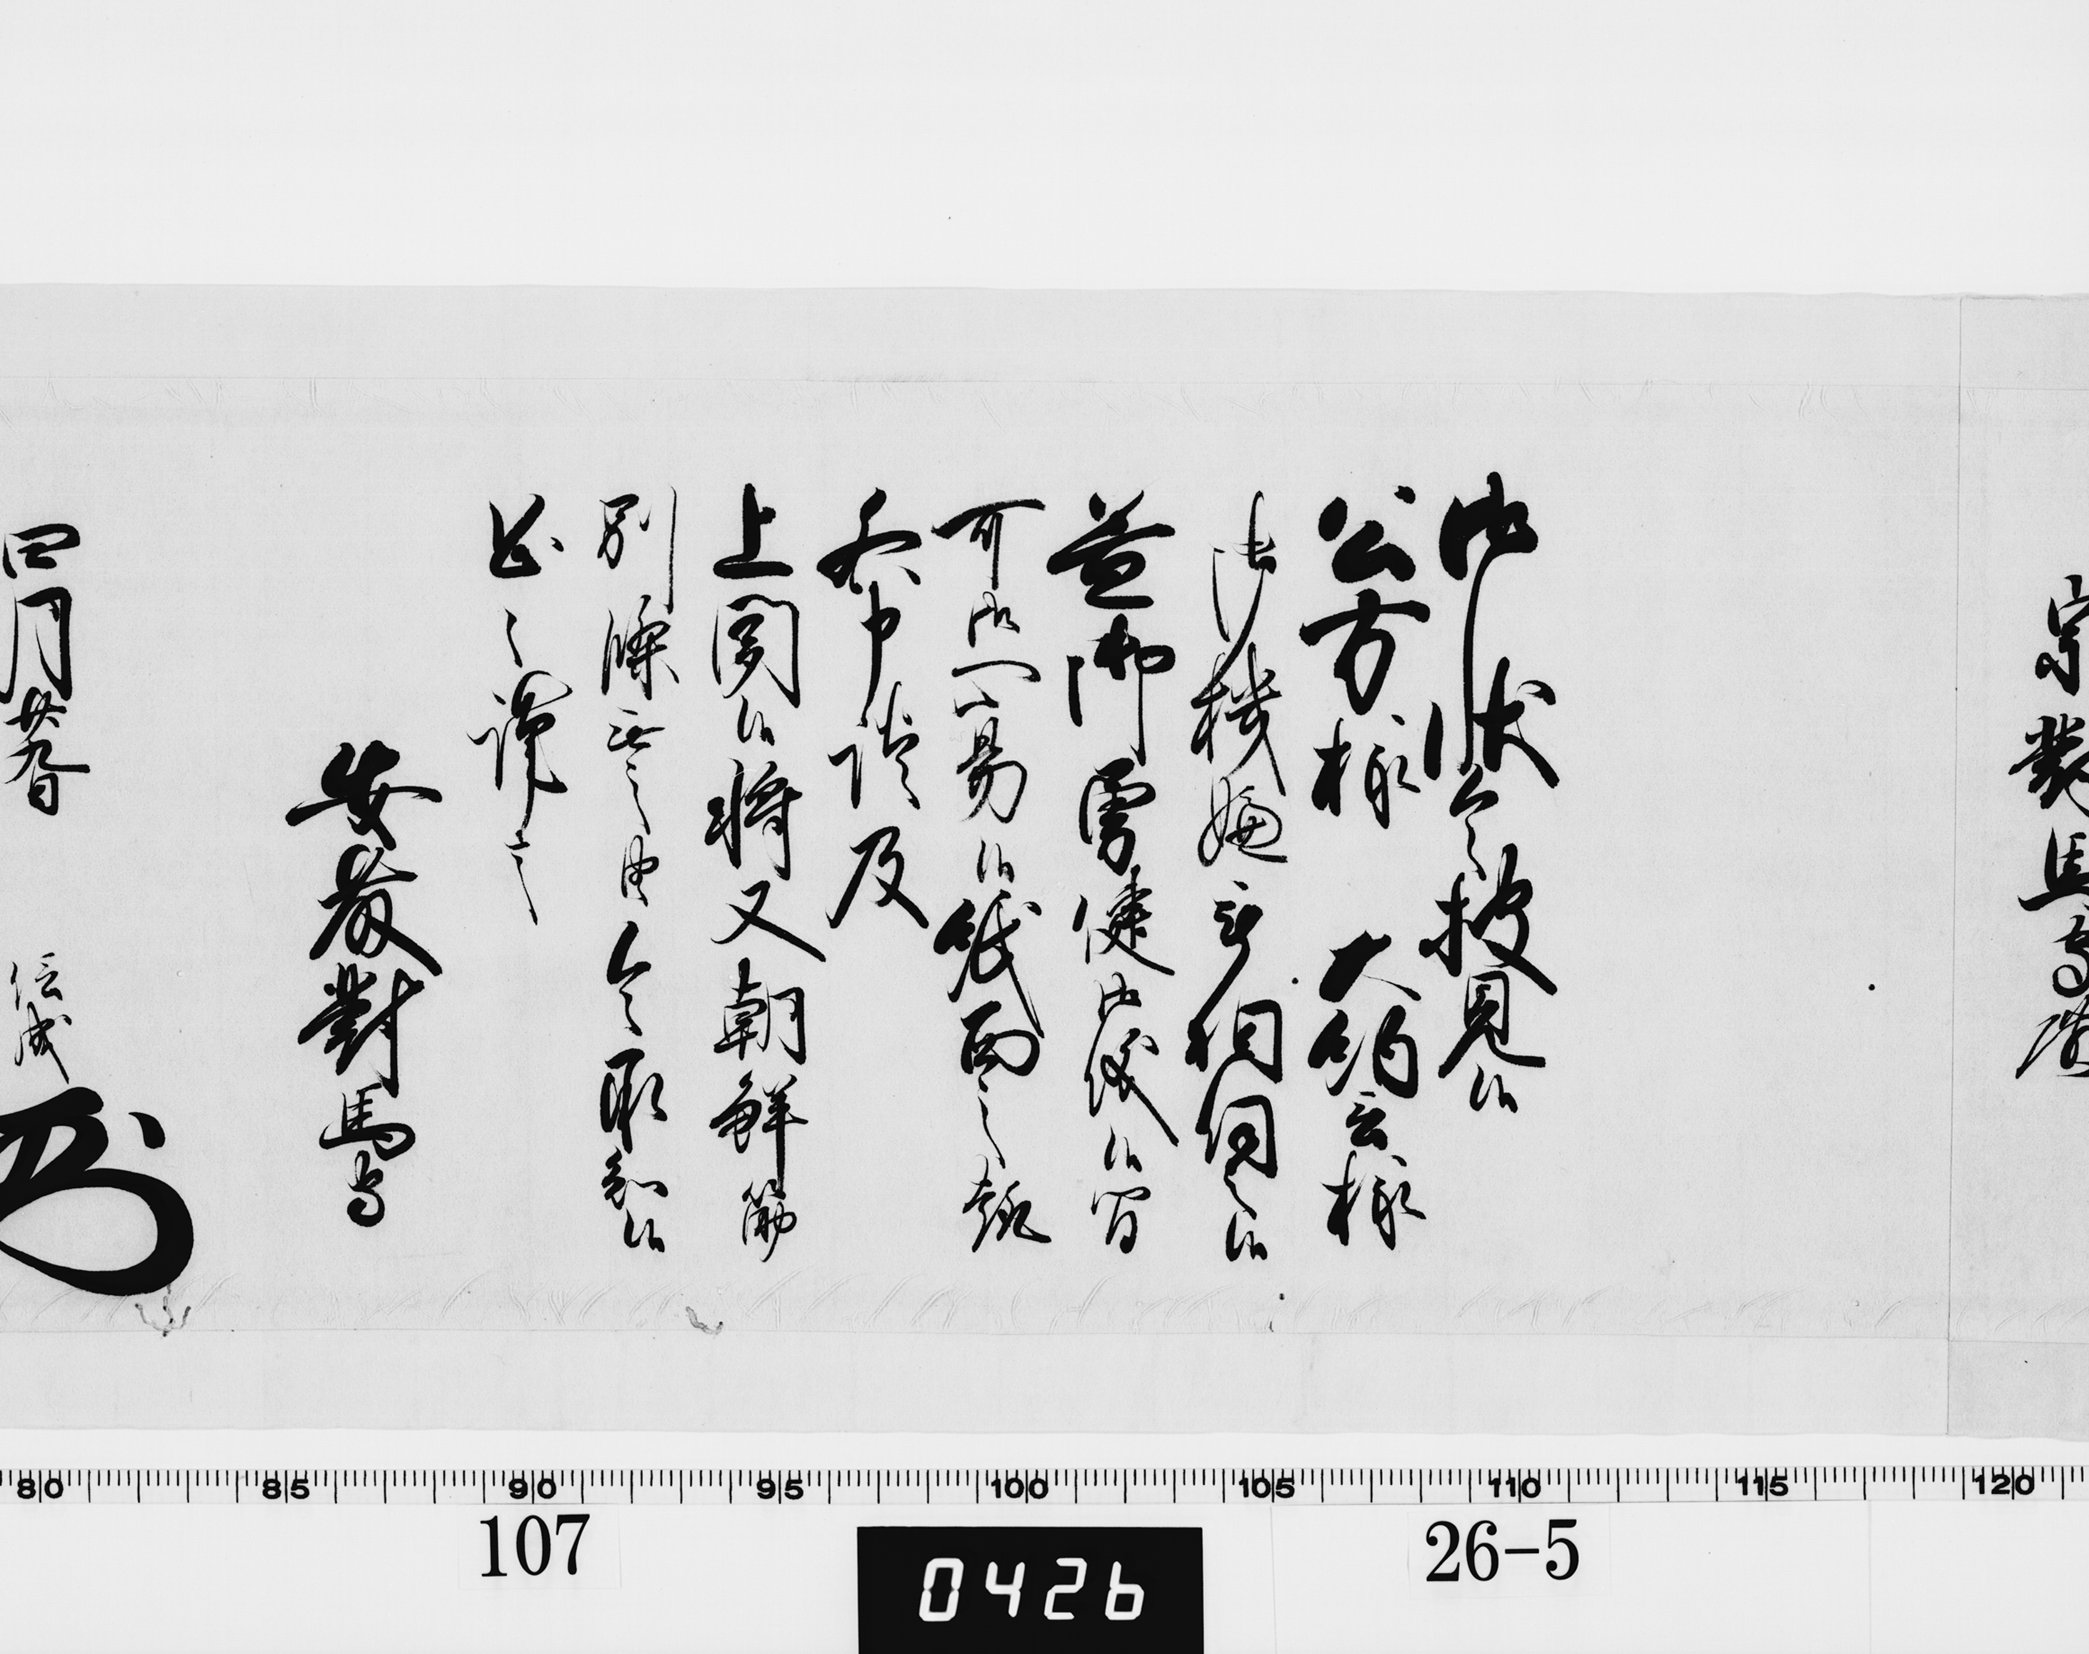 宗對馬守様
御状令披見候
公方様　大納言様
御機嫌被相伺之候
益御勇健御儀候間
可御心易候紙面之趣
各申談及
上聞候将又朝鮮筋
別條無之由令承知候
恐々謹言
安藤對馬守
四月廿八日　信成
80 85 90 95 100 105 110 115 120
107
26-5
0426